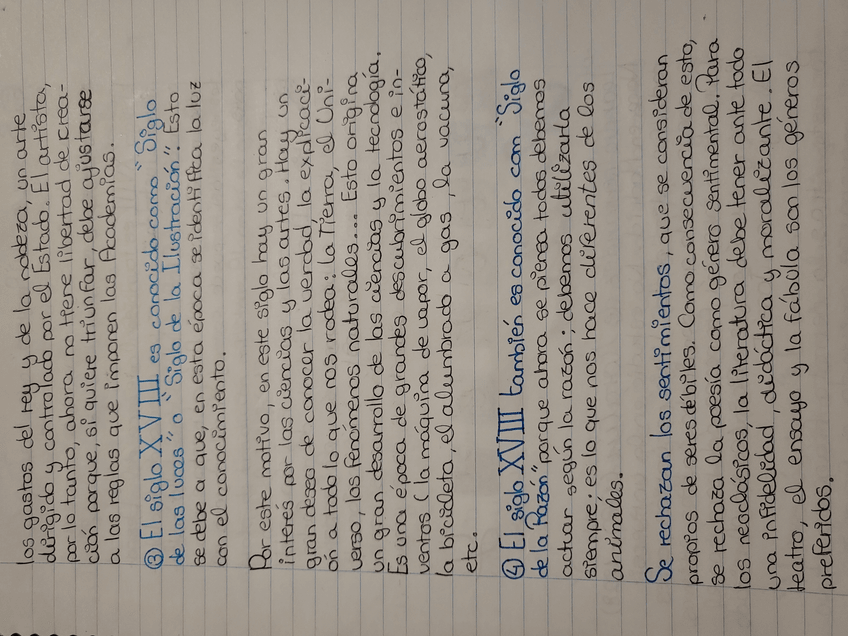 los gastos del rey y de la nobleza, un arte
dirigido y controlado por el Estado. El artista,
por lo tanto, ahora no tiere libertad de crea-
ción porque, si quiere triunfar, debe ajustarse
a las reglas que imponen las Academias.
③ El siglo XVIII es conocido como "Siglo
de las luces" o "Siglo de la Ilustración". Esto
se debe a que, en esta época se identifica la luz
con el conocimiento.
Por este motivo, en este siglo hay un gran
interés por las ciencias y las artes. Hay un
gran deseo de conocer la verdad, la explicaci-
ón a todo lo que nos rodea: la Tierra, el Uni-
verso, los fenómenos naturales... Esto origina
un gran desarrollo de las ciencias y la tecnología.
Es una época de grandes descubrimientos e in-
ventos (la máquina de vapor, el globo aerostático,
la bicicleta, el alumbrado a gas, la vacuna,
etc.
④ El siglo XVIII también es conocido com "Siglo
de la Razón" porque ahora se piensa todos debemos
actuar según la razón; debemos utilizarla
siempre; es lo que nos hace diferentes de los
animales.
Se rechazan los sentimientos, que se consideran
propios de seres débiles. Como consecuencia de esto,
se rechaza la poesía como género sentimental. Para
los neoclásicos, la literatura debe tener ante todo
una infidelidad, didáctica y moralizante. El
teatro, el ensayo y la fábula son los géneros
preferidos.